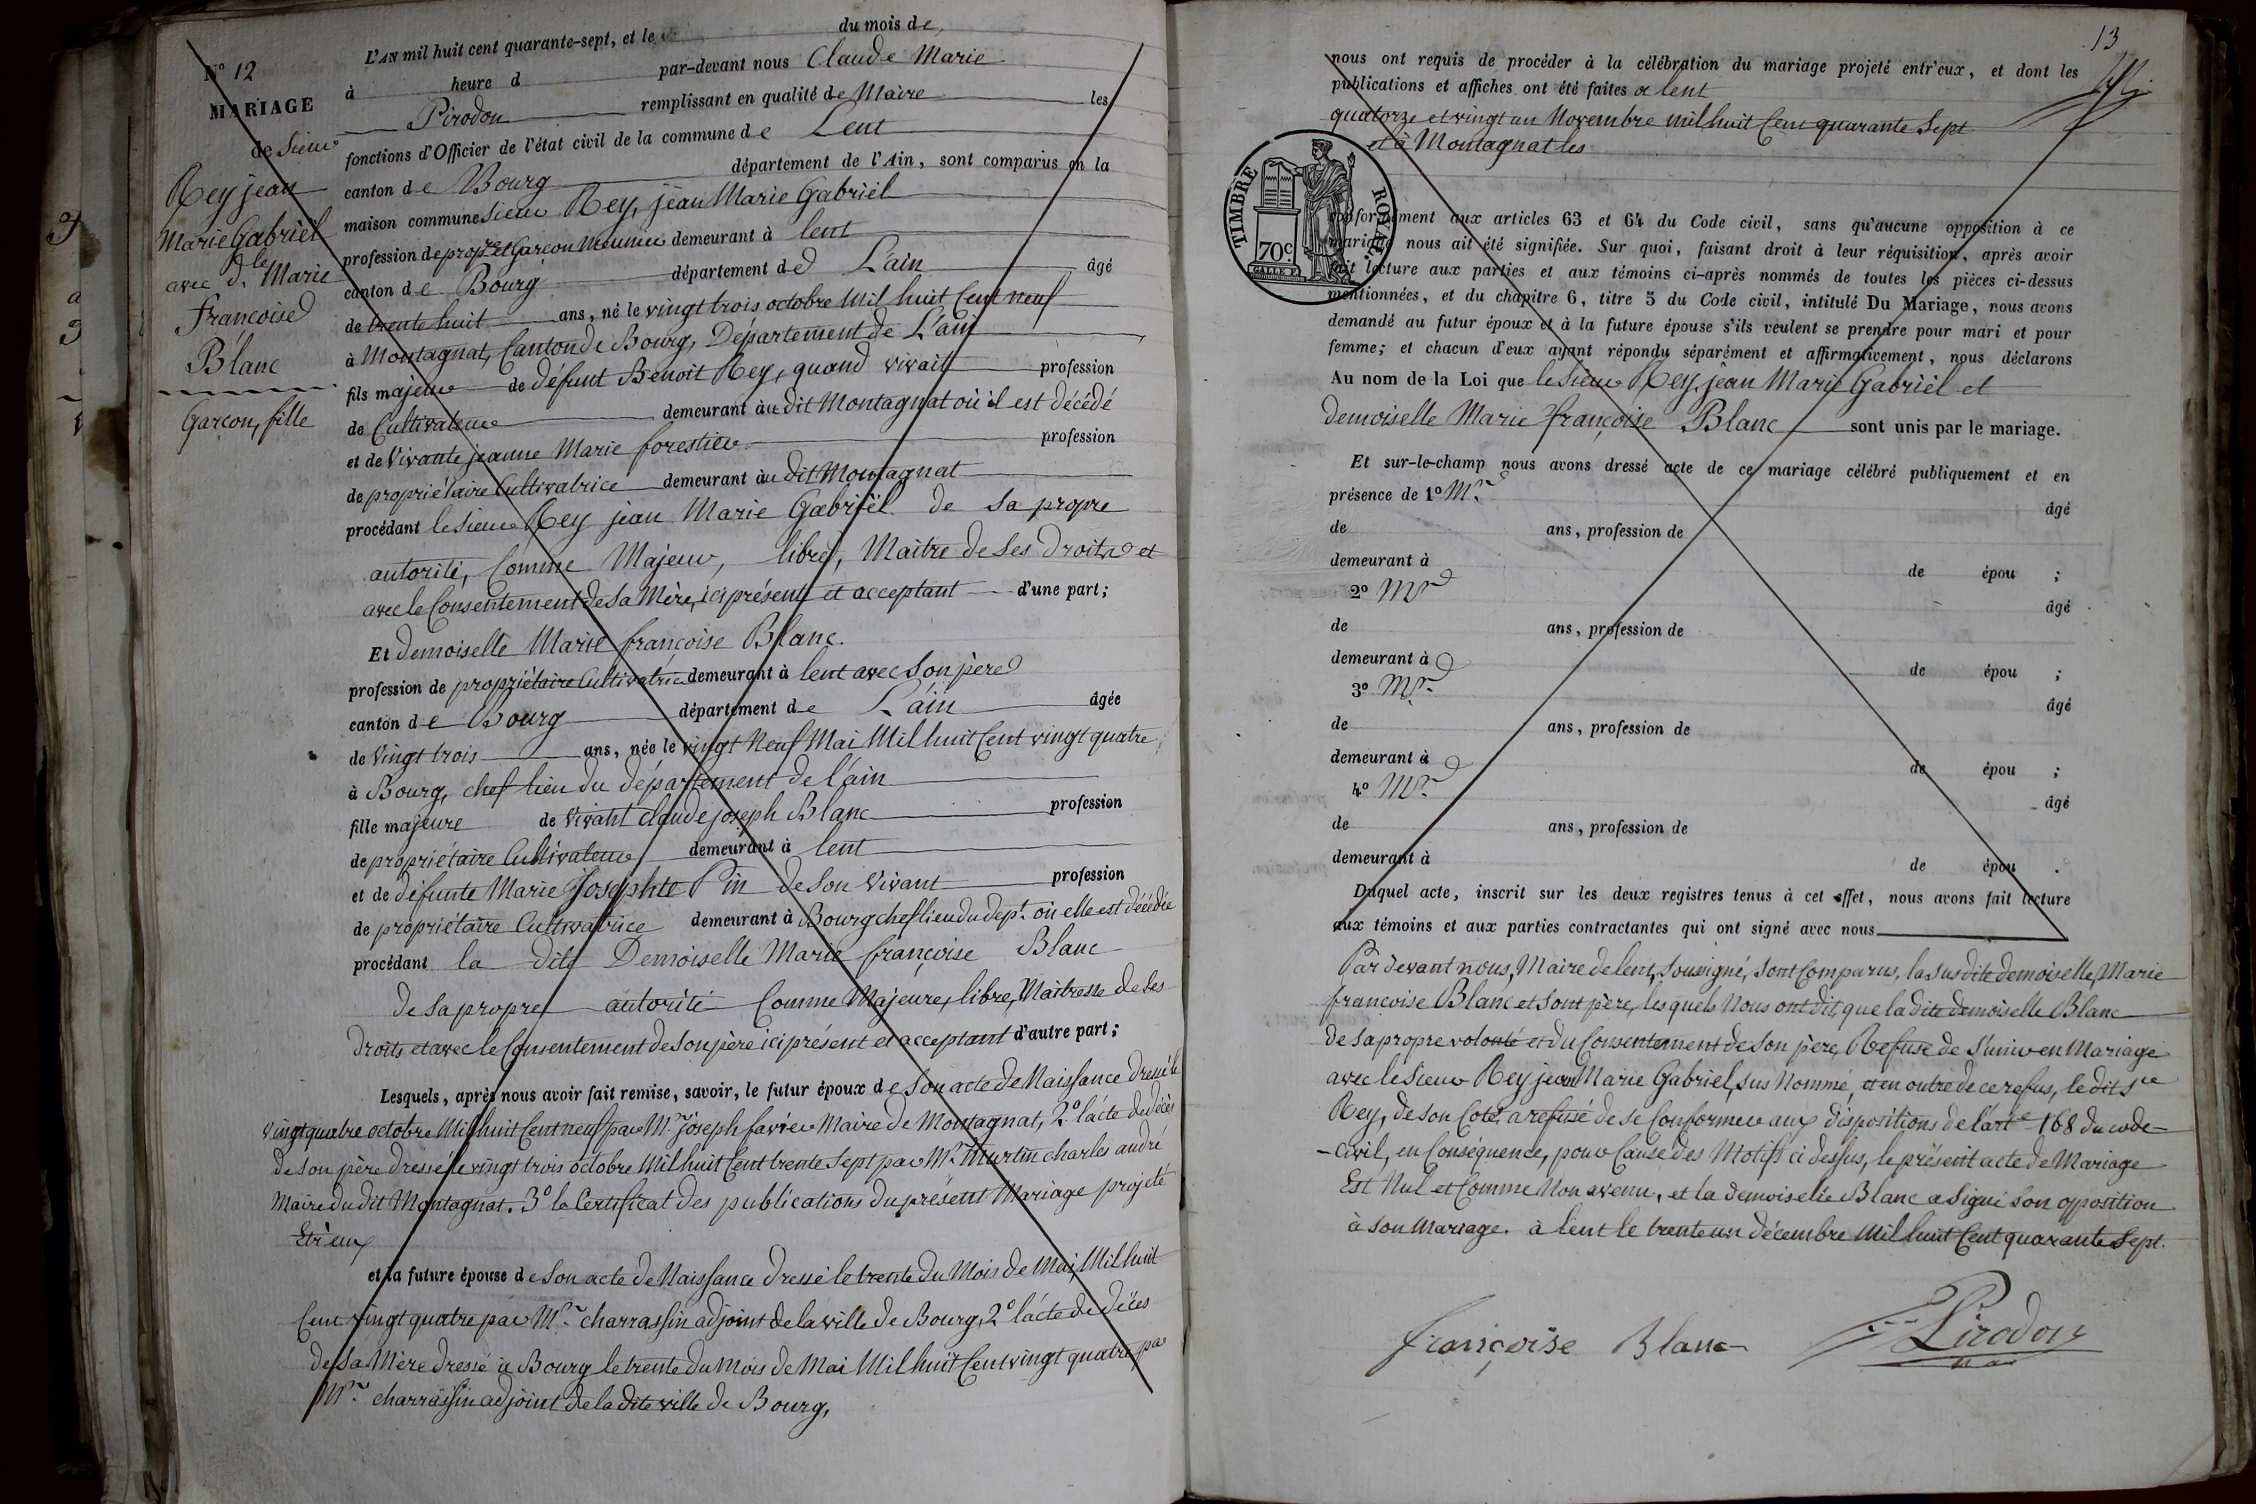 N° 12
MARIAGE
de sieur
Rey jean
Marie Gabriël
avec d.lle Marie
françoise
Blanc
Garçon, fille
L'AN mil huit cent quarante-sept, et le du mois de
à heure d par-devant nous Claude Marie
Pirodon remplissant en qualité de Maire les
fonctions d'Officier de l'état civil de la commune de Lent
canton de Bourg département de l'Ain, sont comparus en la
maison commune Sieur Rey, jean Marie Gabriël
profession de prop.re et Garçon Meunier demeurant à lent
canton de Bourg département de L'ain âgé
de trente huit ans, né le vingt trois octobre Mil huit Cent neuf
à Montagnat, Canton de Bourg, Département de L'ain
fils majeur de défunt Benoit Rey, quand vivait profession
de Cultivateur demeurant au dit Montagnat où il est décédé
et de Vivante jeanne Marie forestier profession
de propriétaire Cultivatrice demeurant au dit Montagnat
procédant le sieur Rey jean Marie Gabriël de sa propre
autorité, Comme Majeur, libre, Maître de ses droits et
avec le Consentement de sa Mère, ici présent et acceptant d'une part;
Et demoiselle Marie françoise Blanc.
profession de propriétaire Cultivatrice demeurant à lent avec son père
canton de Bourg département de L'ain âgée
de Vingt trois ans, née le vingt Neuf Mai Mil huit Cent vingt quatre
à Bourg, chef lieu du département de l'ain
fille majeure de Vivant Claude joseph Blanc profession
de propriétaire Cultivateur demeurant à lent
et de défunte Marie Josephte Pin de son Vivant profession
de propriétaire Cultivatrice demeurant à Bourg chef lieu du dep.t où elle est décédée
procédant la dite Demoiselle Marie françoise Blanc
de sa propre autorité Comme Majeure, libre, Maîtresse de ses
droits et avec le Consentement de son père ici présent et acceptant d'autre part;
Lesquels, après nous avoir fait remise, savoir, le futur époux de son acte de Naissance dressé le
vingt quatre octobre Mil huit Cent neuf par M.r joseph favier Maire de Montagnat, 2° l'acte de décès
de son père dressé le vingt trois octobre Mil huit Cent trente Sept par M.r Martin charles andré
Maire du dit Montagnat. 3° le Certificat des publications du présent Mariage projeté
et la future épouse de son acte de Naissance dressé le trente du Mois de Mai, Mil huit
Cent vingt quatre par M.r charrassin adjoint de la ville de Bourg, 2° l'acte de décès
de sa Mère dressé à Bourg le trente du Mois de Mai Mil huit Cent vingt quatre par
M.r charrassin adjoint de la dite ville de Bourg,
13
nous ont requis de procéder à la célébration du mariage projeté entr'eux, et dont les
publications et affiches ont été faites a lent
quatorze et vingt un Novembre mil huit Cent quarante Sept
et à Montagnat les
TIMBRE ROYAL
70c
conformément aux articles 63 et 64 du Code civil, sans qu'aucune opposition à ce
mariage nous ait été signifiée. Sur quoi, faisant droit à leur réquisition, après avoir
fait lecture aux parties et aux témoins ci-après nommés de toutes les pièces ci-dessus
mentionnées, et du chapitre 6, titre 5 du Code civil, intitulé Du Mariage, nous avons
demandé au futur époux et à la future épouse s'ils veulent se prendre pour mari et pour
femme; et chacun d'eux ayant répondu séparément et affirmativement, nous déclarons
Au nom de la Loi que le sieur Rey, jean Marie Gabriël et
demoiselle Marie françoise Blanc sont unis par le mariage.
Et sur-le-champ nous avons dressé acte de ce mariage célébré publiquement et en
présence de 1° M.r âgé
de ans, profession de
demeurant à de épou ;
2° M.r âgé
de ans, profession de
demeurant à de épou ;
3° M.r âgé
de ans, profession de
demeurant à de épou ;
4° M.r âgé
de ans, profession de
demeurant à de épou .
Duquel acte, inscrit sur les deux registres tenus à cet effet, nous avons fait lecture
aux témoins et aux parties contractantes qui ont signé avec nous
Par devant nous, Maire de lent, Sousigné, sont Comparus, la susdite demoiselle, Marie
françoise Blanc et sont père, lesquels Nous ont dit, que la dite demoiselle Blanc
de sa propre volonté et du Consentement de son père, Refuse de S'unir en Mariage
avec le sieur Rey jean Marie Gabriel, sus Nommé, et en outre de ce refus, le dit s.r
Rey, de son Coté, a refusé de se Conformer aux dispositions de l'art.e 168 du code
-Civil, en Conséquence, pour Cause des Motifs ci dessus, le présent acte de Mariage
Est Nul et Comme Non avenu, et la demoiselle Blanc a Signé son opposition
à son Mariage. à lent le trente un décembre Mil huit Cent quarante Sept.
françoise Blanc Pirodon